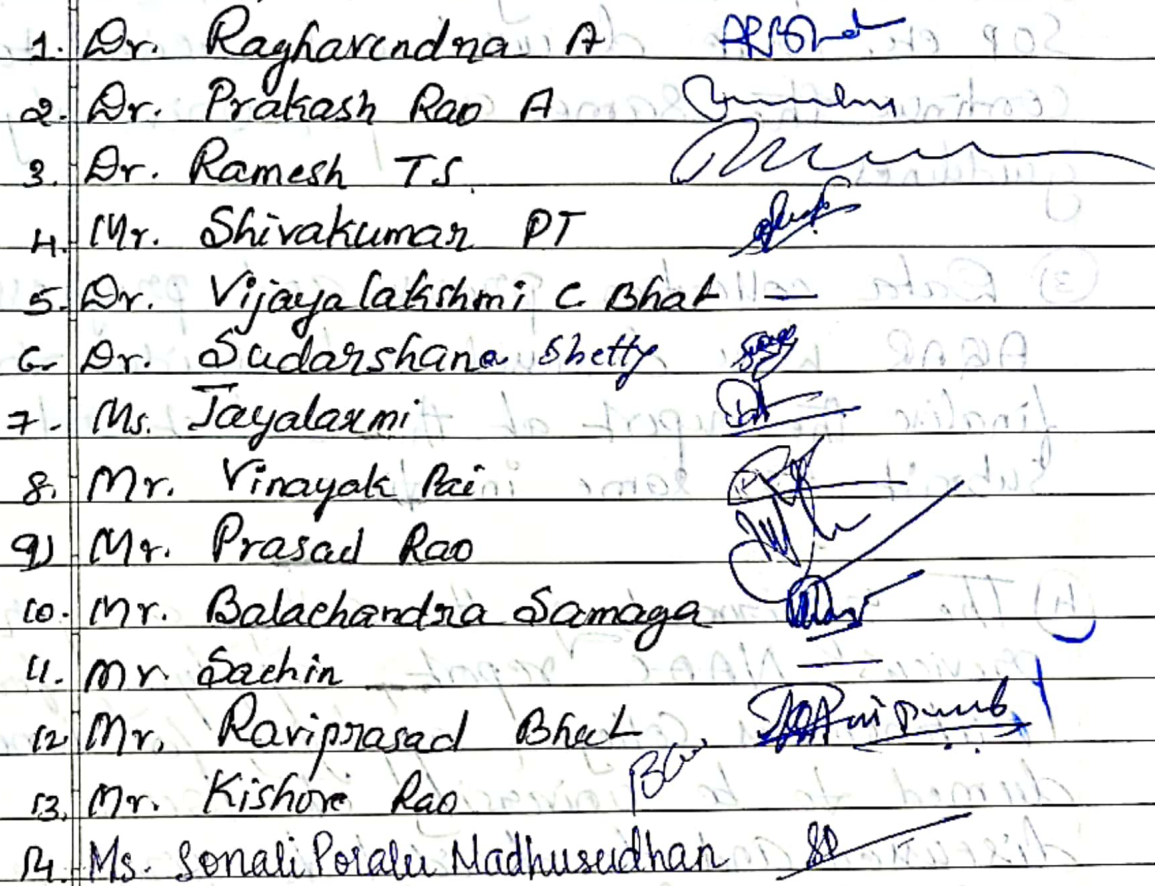 1. Dr. Raghavendra A
2. Dr. Prakash Rao A
3. Dr. Ramesh T S.
4. Mr. Shivakumar PT
5. Dr. Vijayalakshmi C Bhat —
6. Dr. Sudarshana Shetty
7. Ms. Jayalaxmi
8. Mr. Vinayak Pai
9) Mr. Prasad Rao
10. Mr. Balachandra Samaga
11. Mr Sachin —
12 Mr. Raviprasad Bhat
13. Mr. Kishore Rao
14. Ms. Sonali Poralu Madhusudhan